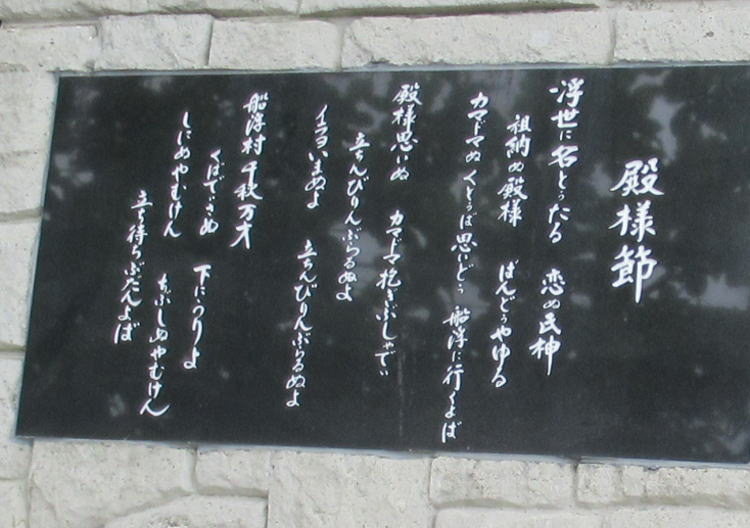 殿様節
浮世に名とぅたる 恋ぬ民神
祖納ぬ殿様 ばんどぅやゆる
カマドマぬ くとぅば思いどぅ 船浮に行くよば
殿様思いぬ カマドマ抱きぶしゃでぃ
立ちんびりんぶらるぬよ
イヨヨいまぬよ 立ちんびりんぶらるぬよ
船浮村 千秋万才
くばでさぬ 下につりよ
しにぬやむけん ちぶしぬやむけん
立ち待らぶたんよば